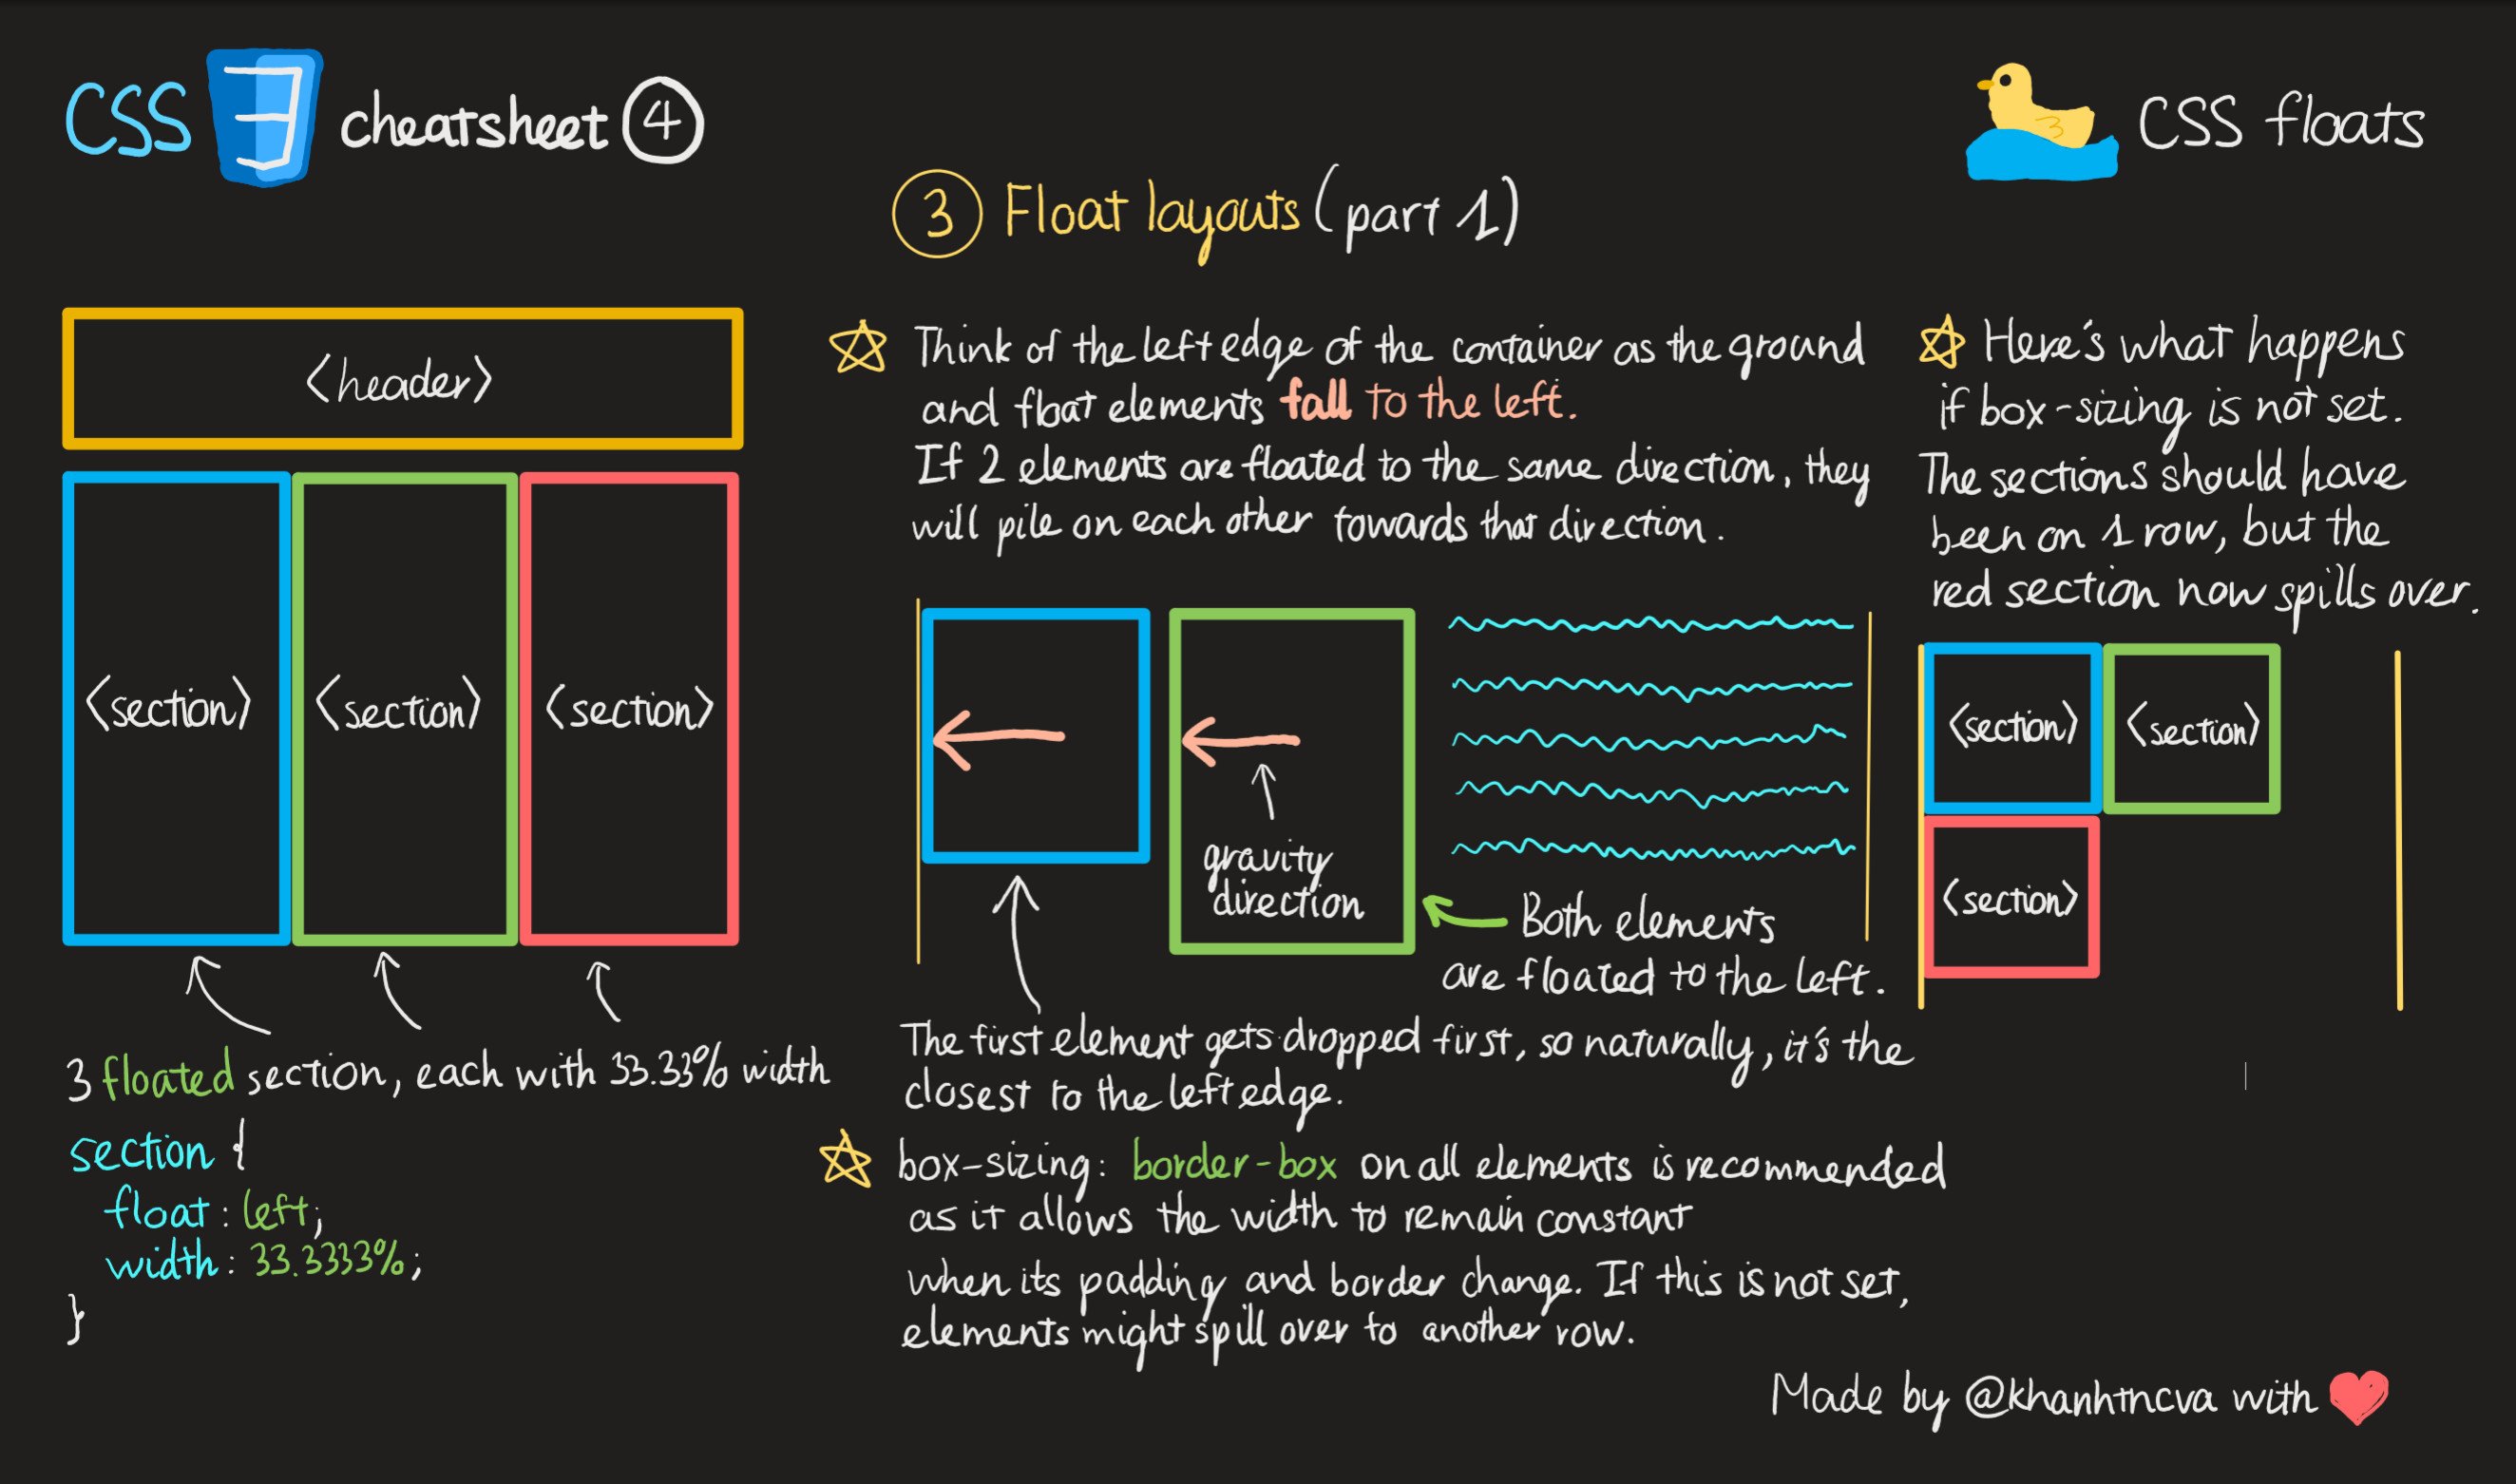 CSS 3 cheatsheet 4
CSS floats
3 Float layouts (part 1)
<header>
<section>
<section>
<section>
3 floated section, each with 33.33% width
section {
float: left;
width: 33.3333%;
}
Think of the left edge of the container as the ground
and float elements fall to the left.
If 2 elements are floated to the same direction, they
will pile on each other towards that direction.
gravity
direction
Both elements
are floated to the left.
The first element gets dropped first, so naturally, it's the
closest to the left edge.
box-sizing: border-box on all elements is recommended
as it allows the width to remain constant
when its padding and border change. If this is not set,
elements might spill over to another row.
Here's what happens
if box-sizing is not set.
The sections should have
been on 1 row, but the
red section now spills over.
<section>
<section>
<section>
Made by @khanhtncva with